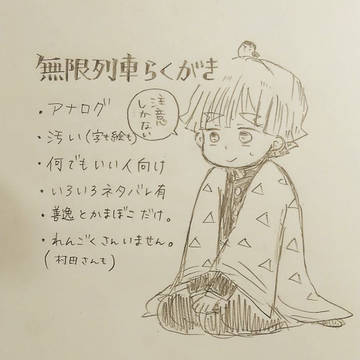 無限列車らくがき
・アナログ
・汚い(字も絵も)
・何でもいい人向け
・いろいろネタバレ有
・善逸とかまぼこだけ。
・れんごくさんいません。
(村田さんも)
注意
しかない